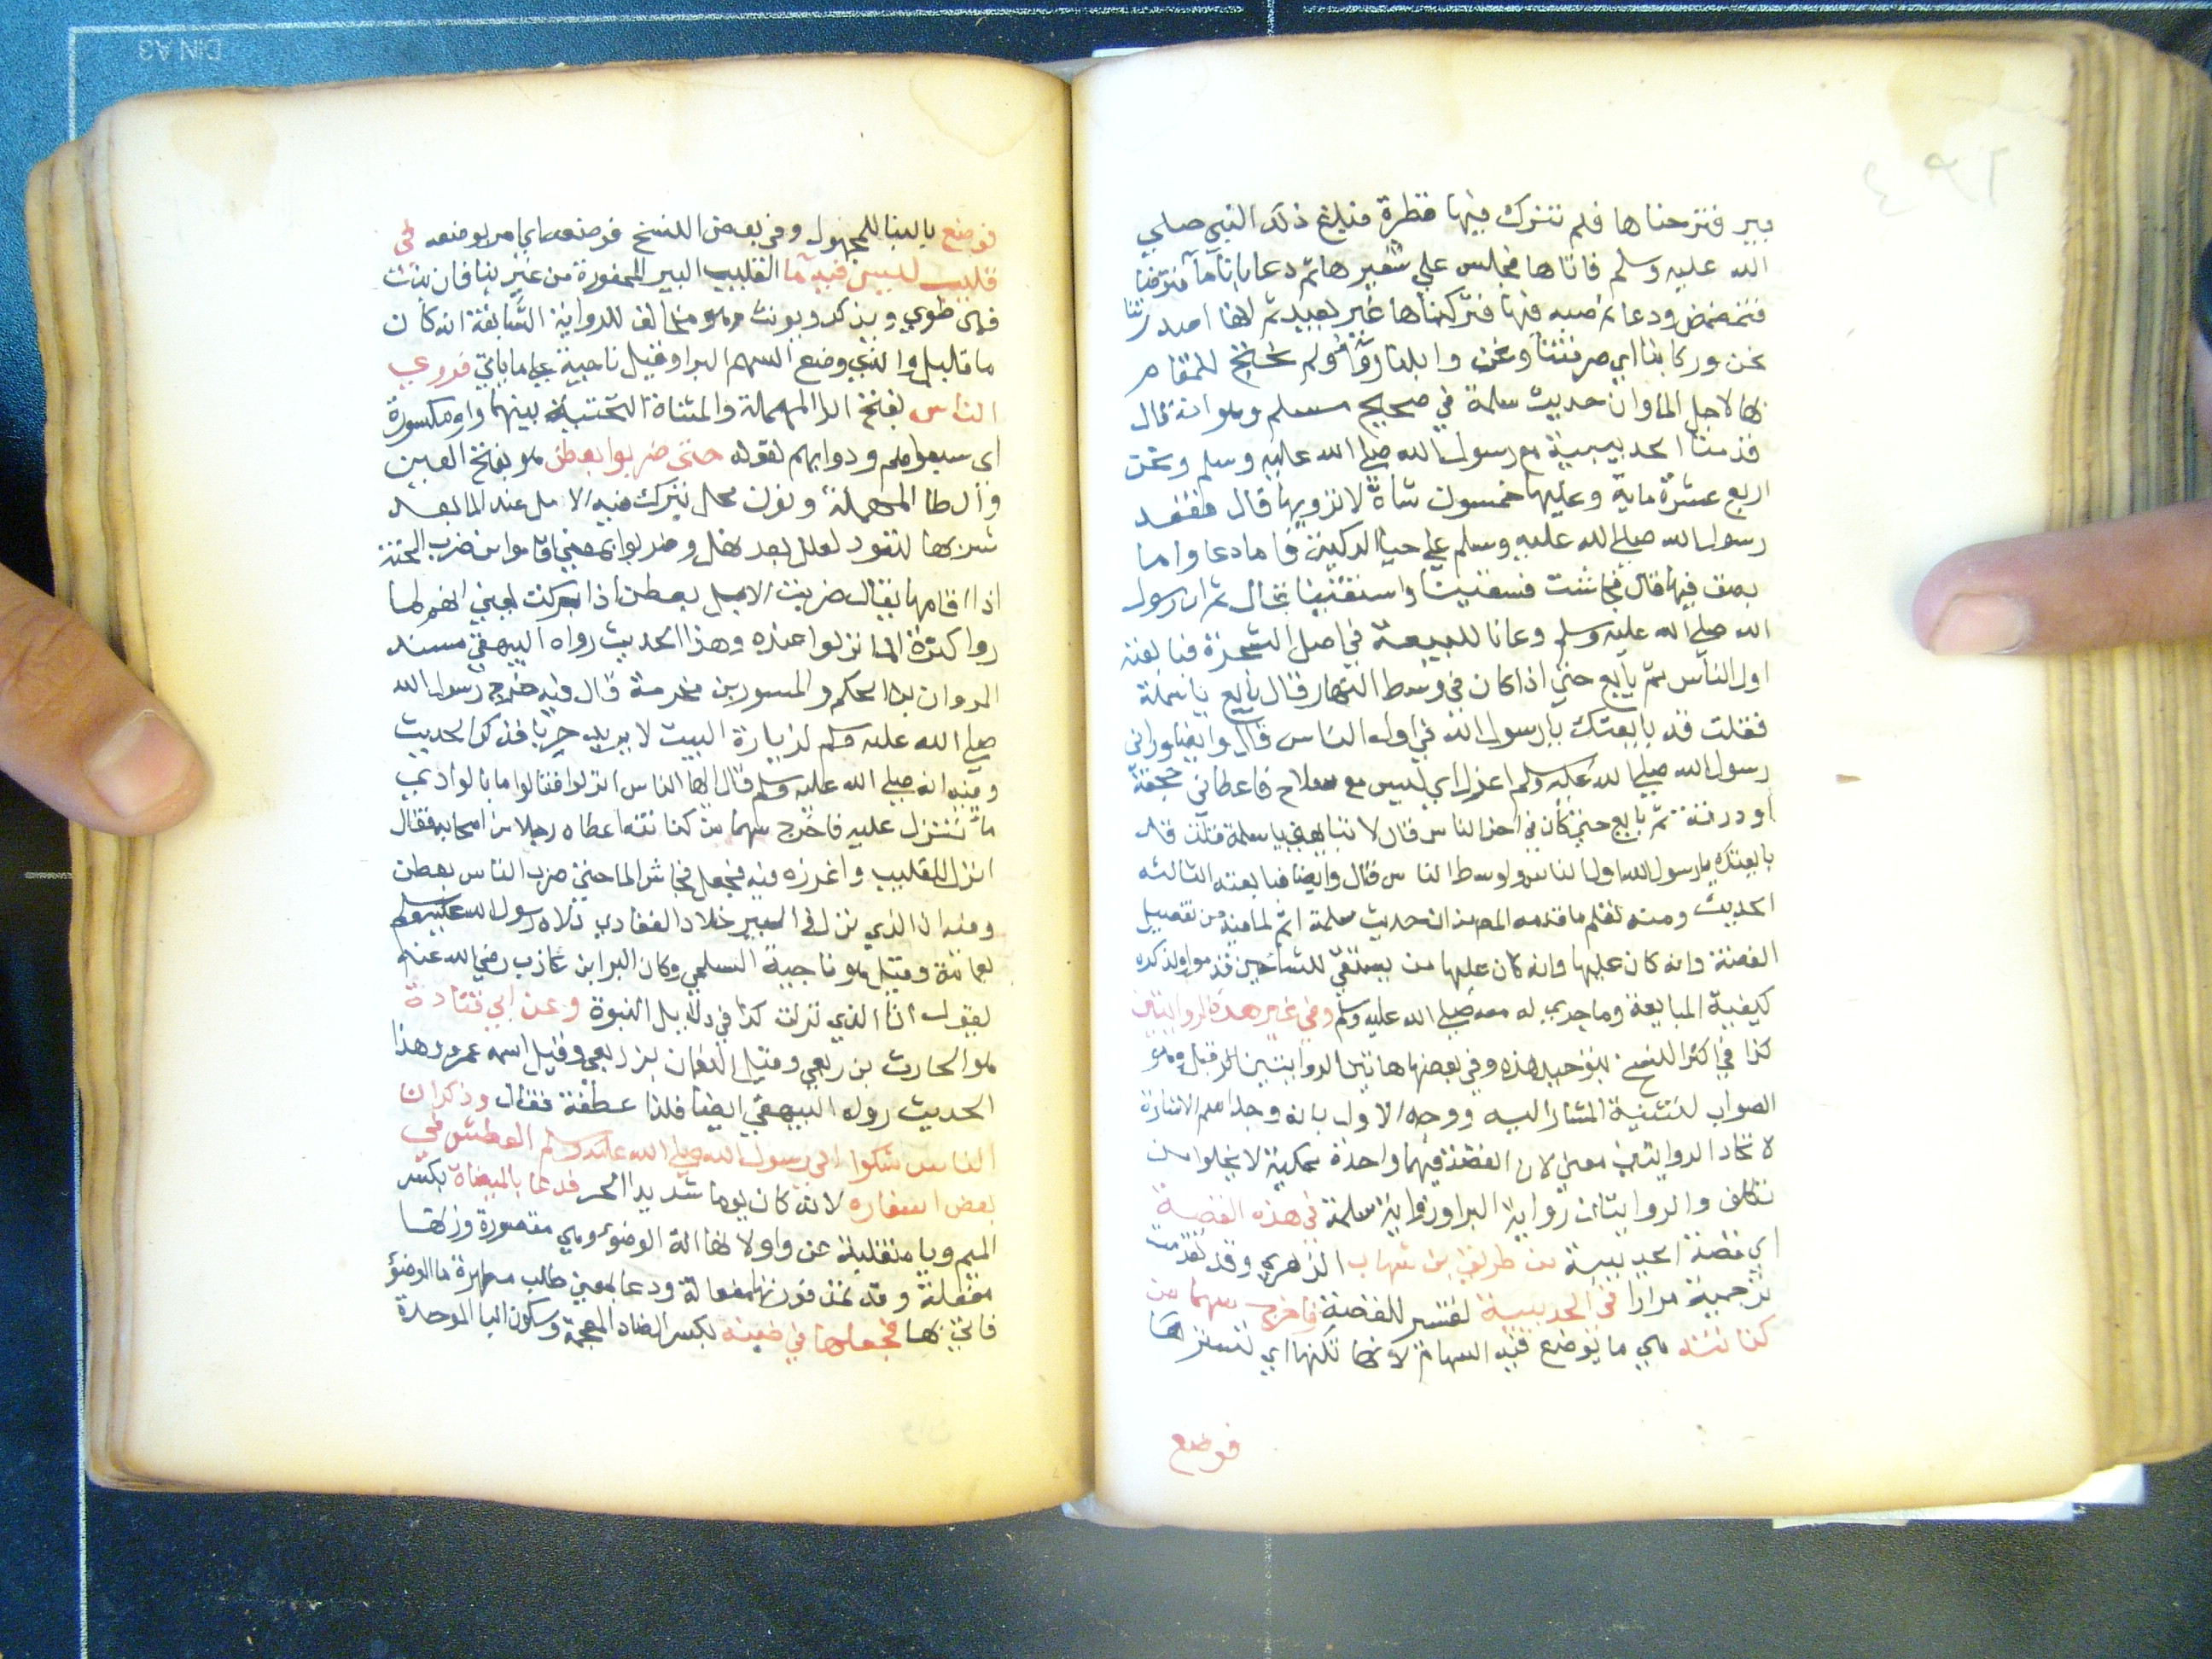 بير فنزحناها فلم نترك فيها قطرة فبلغ ذلك النبي صلي
الله عليه وسلم فاتاها فجلس علي شفيرها ثم دعا بانا ما فتوضا
فتمضمض ودعا ثم صبه فيها فتركناها غير بعيد ثم انها اصدرتنا
نحن وركابنا اي صرفتنا ونحن وابلنا روا ولم نحتج للمقام
بها لاجل الما وان حديث سلمة في صحيح مسلم وهو انه قال
قدمنا الحديبية مع رسول الله صلي الله عليه وسلم ونحن
اربع عشرة ماية وعليها خمسون شاة لا نرويها قال فقعد
رسول الله صلي الله عليه وسلم علي حيا الركية فاما دعا واما
بصق فيها قال فجاشت فسقينا واستقينا قال ثم ان رسول
الله صلي الله عليه وسلم دعانا للبيعة في اصل الشجرة فبايعته
اول الناس ثم بايع حتي اذا كان في وسط النهار قال بايع يا سلمة
فقلت قد بايعتك يا رسول الله في اول الناس قال وايضا وراني
رسول الله صلي الله عليه وسلم اعزل اي ليس مع سلاح فاعطاني حجفة
او درقة ثم بايع حتي كان في اخر الناس قال لا تبايعني يا سلمة قلت قد
بايعتك يا رسول الله اول الناس ووسط الناس قال وايضا فبايعته الثالثه
الحديث ومنه تعلم ما قدمه المصنف ان حديث سلمة اتم لما فيه من تفصيل
القصة وانه كان عليها وانه كان عليها من يستقي للشاخين قدموا وذكره
كيفية المبايعة وما جري له معه صلي الله عليه وسلم وفي غير هذه الروايتين
كذا في اكثر النسخ بتوحيد هذه وفي بعضها هاتين الروايتين قيل وهو
الصواب لتثنية المشار اليه ووجه الاول بانه وحد اسم الاشارة
لاتحاد الروايتين معني لان القصة فيهما واحدة لا يخلوا من
تكلف والروايتان رواية البرا ورواية سلمة في هذه القصة
اي قصة الحديبية من طريق بن شهاب الزهري وقد تقدمت
ترجمته مرارا في الحديبية تفسير للقصة فاخرج سهما من
كنانته هي ما يوضع فيه السهام لانها تكنها اي تسترها
فوضع
فوضع بالبنا للمجهول وفي بعض النسخ فوضعه اي امر بوضعه في
قليب ليس فيه ما القليب البير المحفورة من غير بنا فان بنيت
فهي طوي ويذكر ويونث وهو مخالف للرواية السابقة انه كان
ما قليل والذي وضع السهم البرا وقيل ناجية علي ما ياتي فروي
الناس بفتح الرا المهملة والمثناة التحتية بينهما واو مكسورة
اي سيعوا هم ودوابهم لقوله حتي ضربوا بعطن هو بفتح العين
والطا المهملة ونون محل تبرك فيه الابل عند الما بعد
شربها لتعود لعلل بعد نهل وضربوا بمعني اقاموا من ضرب الخيمة
اذا اقامها يقال ضربت الابل بعطن اذا بركت يعني انهم لما
روا كثرة الما نزلوا عنده وهذا الحديث رواه البيهقي مسند
المروان بن الحكم والمسور بن مخرمة قال فيه خرج رسول الله
صلي الله عليه وسلم لزيارة البيت لا يريد حربا فذكر الحديث
وفيه انه صلي الله عليه وسلم قال ايها الناس انزلوا فقالوا ما بالوادي
ما ننزل عليه فاخرج سهما من كنانته اعطاه رجلا من اصحابه فقال
انزل القليب واغرزه فيه فجعل فجاش الما حتي ضرب الناس بعطن
وفيه ان الذي نزل في البير خلاد الغفاري دلاه رسول الله عليه وسلم
بعمامته وقيل هو ناجية السلمي وكان البرا بن عازب رضي الله عنه
يقول انا الذي نزلت كذا في دلايل النبوة وعن ابي قتادة
هو الحارث بن ربعي وقيل النعمان بن ربعي وقيل اسمه عمرو وهذا
الحديث رواه البيهقي ايضا فلذا عطفه فقال وذكر ان
الناس شكوا الي رسول الله صلي الله عليه وسلم العطش في
بعض اسفاره لانه كان يوما شديد الحر فدعا بالميضاة بكسر
الميم ويا منقلبة عن واو لانها الة الوضوء وهي مقصورة وزنها
مفعلة وقد تمد فوزنها مفعالة ودعا بمعني طلب مطهرة ما الوضوء
فاتي بها فجعلها في ضبنه بكسر الضاد المعجمة وسكون البا الموحدة